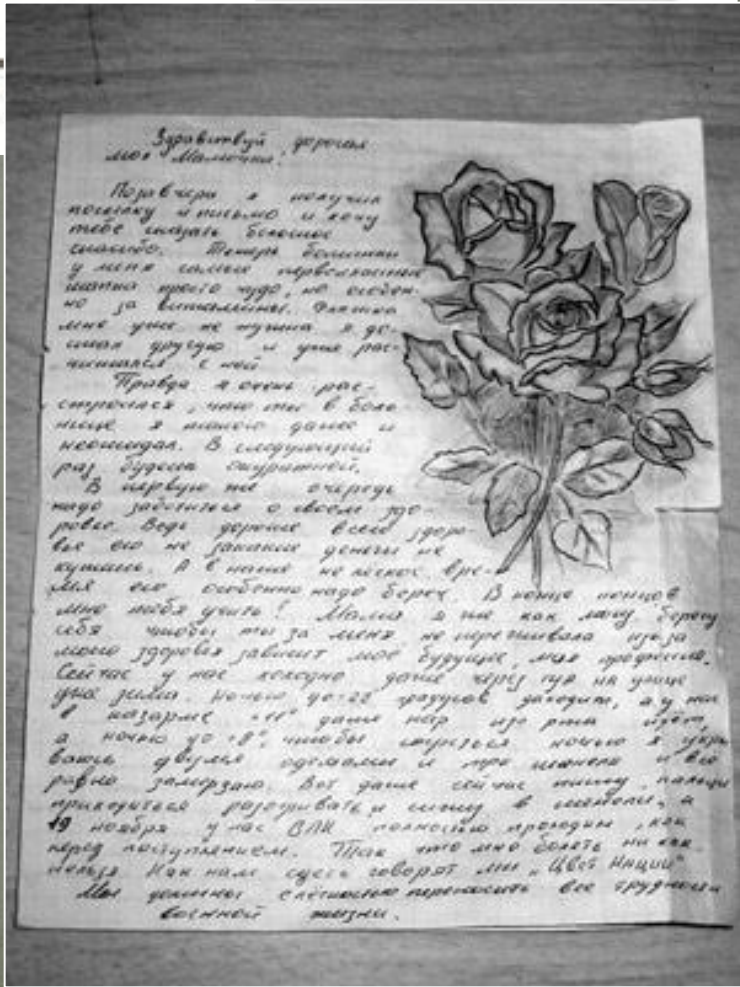 Здравствуй дорогая
моя Мамочка!
Позавчера я получил
посылку и письмо и хочу
тебе сказать большое
спасибо. Теперь ботинки
у меня самые первоклассные
шапка просто чудо, но особен-
но за витамины. Фляшка
мне уже не нужна я до-
стал другую и уже рас-
с ней
Правда я очень рас-
строился, что ты в боль-
нице я такого даже и
неожидал. В следующий
раз будешь аккуратней.
В первую же очередь
надо заботиться о своем здо-
ровье. Ведь дороже всего здоро-
вье его не за деньги не
купишь. А в наше не вре-
мя его особенно надо береч. В конце концов
мне тебя учить! Мама я уже как могу берегу
себя чтобы ты за меня не переживала из за
моего здоровья зависит моё будущее, моя профессия.
Сейчас у нас холодно даже через на улице
уже зима. Ночью до -22 градусов доходит, а у нас
в казарме +11° даже пар изо рта идёт,
а ночью до +8°, чтобы согреться ночью я укры-
ваюсь двумя одеялами и шинели и всё
равно замерзаю. Вот даже сейчас пишу, пальцы
приходиться разогревать и сижу в шинели, а
19 ноября у нас ВЛК полностью проходим, как
перед поступлением. Так что мне болеть ни как
нельзя Как нам здесь говорят мы "Цвет Нации"
Мы должны с лёгкостью переносить все трудности
военной жизни.